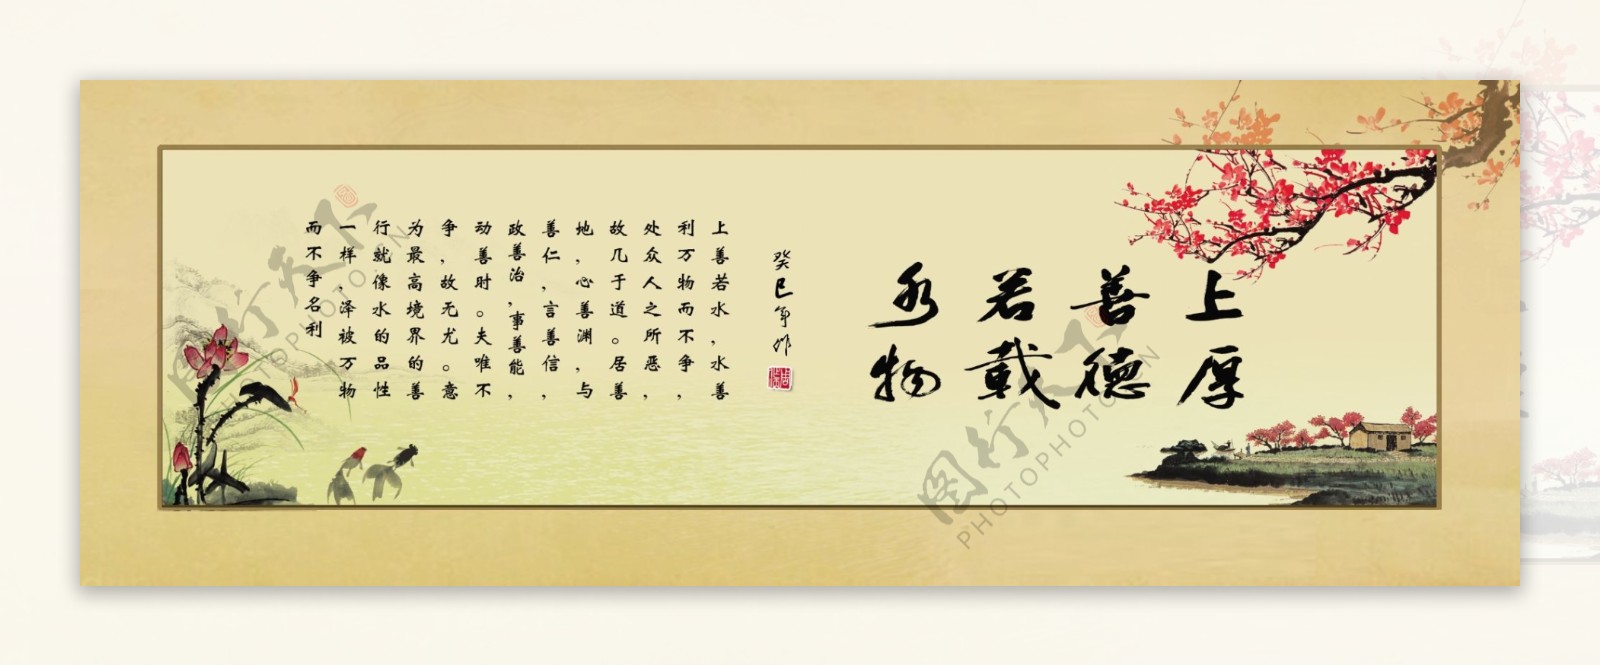 上善若水
厚德載物
癸巳年作
上善若水,水善
利万物而不争,
处众人之所恶,
故几于道。居善
地,心善渊,与
善仁,言善信,
政善治,事善能,
动善时。夫唯不
争,故无尤。意
为最高境界的善
行就像水的品性
一样,泽被万物
而不争名利
图行天下
PHOTOPHOTO.CN
图行天下
PHOTOPHOTO.CN